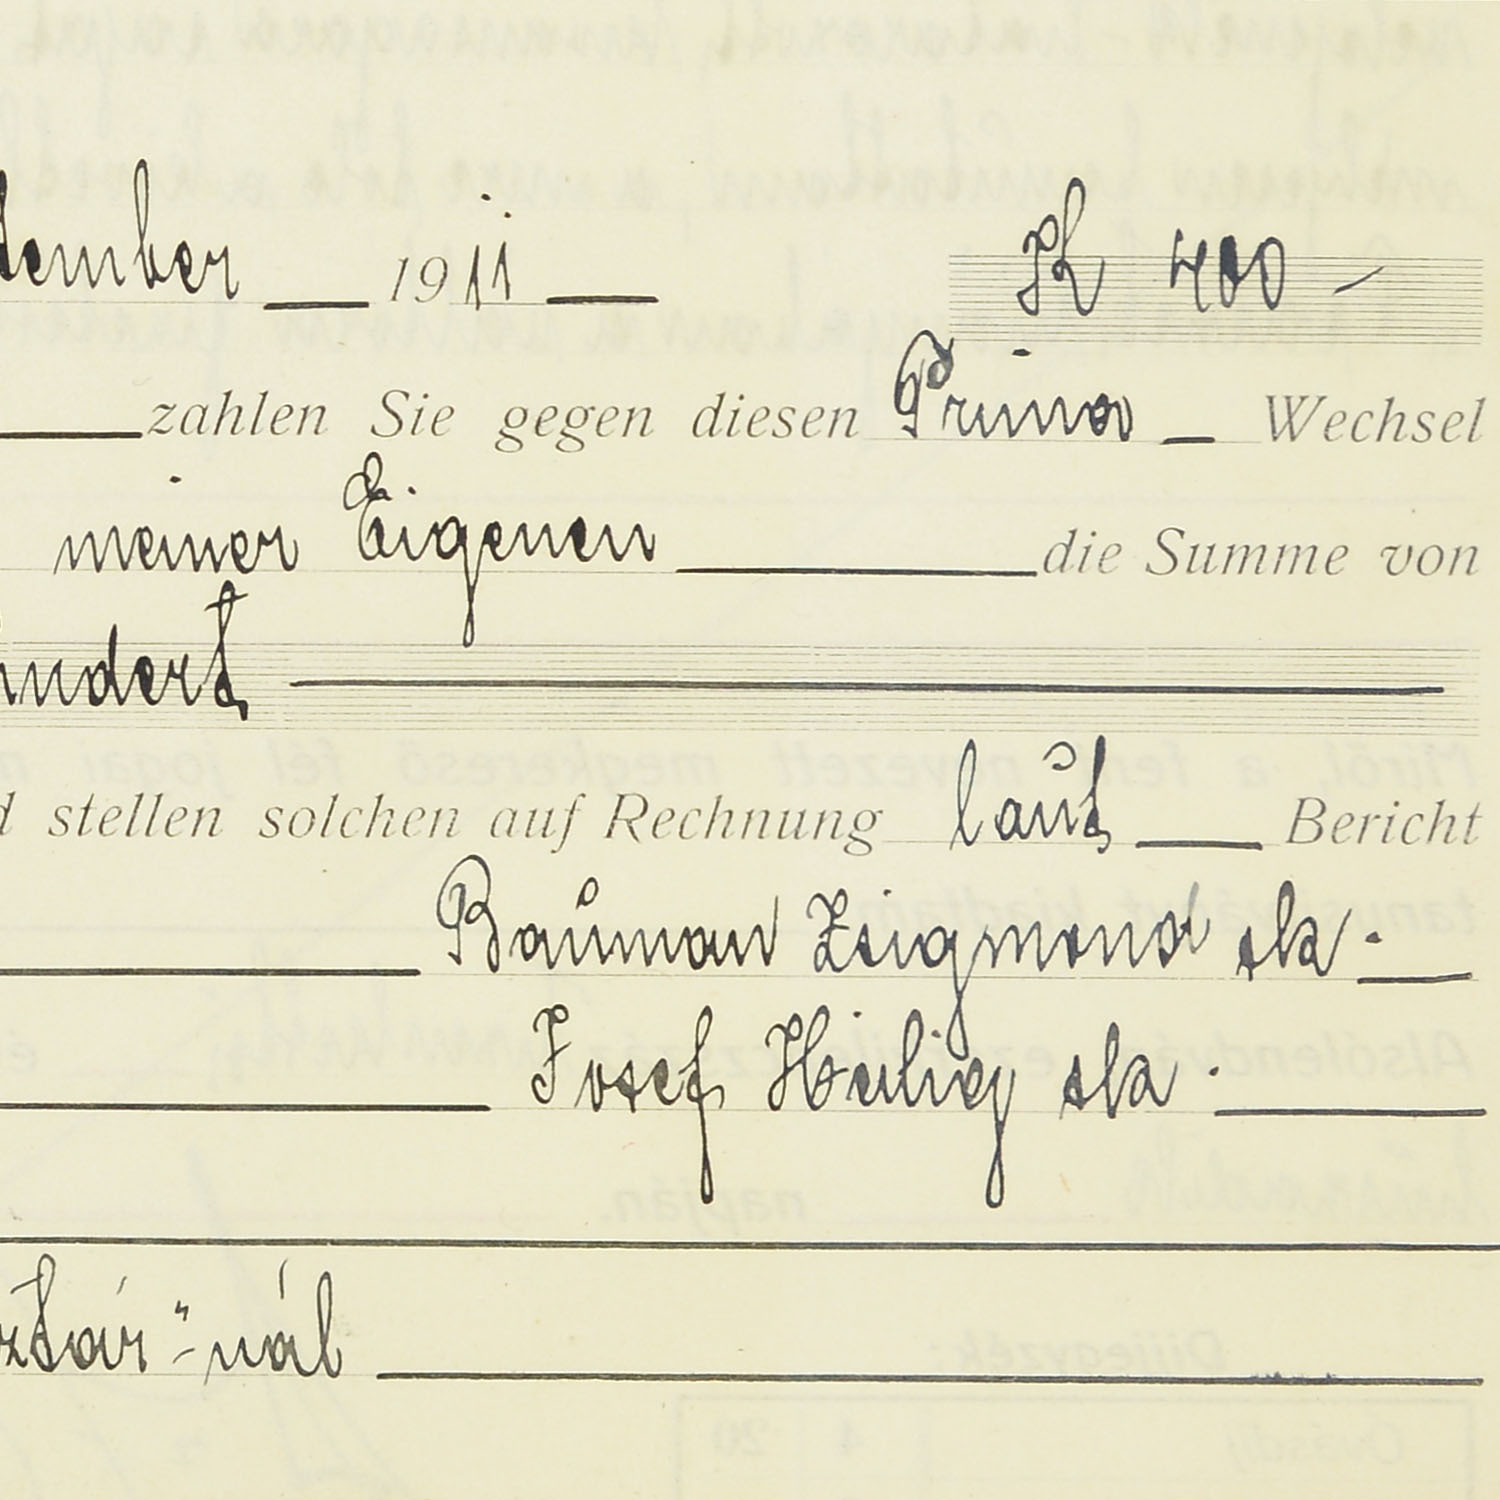 tember 1911 K 400 –
zahlen Sie gegen diesen Prima Wechsel
meiner Eigenen die Summe von
hundert
d stellen solchen auf Rechnung laut Bericht
Bauman Zsigmond sk.
Josef Heilig sk.
ztár"-nál